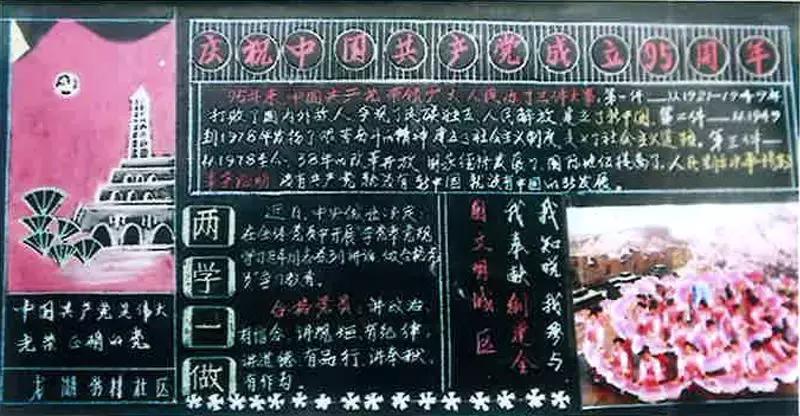 庆祝中国共产党成立95周年
95年来,中国共产党带领广大人民办了三件大事。第一件——从1921—1949年
打败了国内外敌人,实现了民族独立,人民解放,建立了新中国。第二件——从1949
到1978年发扬了艰苦奋斗的精神建立了社会主义制度,
第三件——
从1978至今,38年的改革开放,国家经济发展了,国际地位提高了,人民生活
事实证明 没有共产党就没有新中国 就没有中国的新发展。
两学一做
近日,中央
在全体党员中开展"学党章党规
学习系列讲话,做合格党
员"学习教育。
合格党员: 讲政治、
有信念、讲规矩、有纪律,
讲道德、有品行、讲奉献、
有作为。
我知晓 我参与
我奉献 创建全
国文明城区
中国共产党是伟大
光荣正确的党
社区